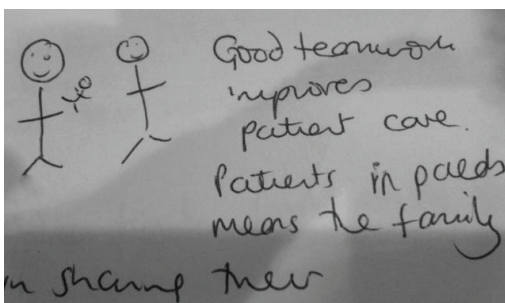 Good teamwork
improves
patient care.
Patients in paeds
means the family
sharing their